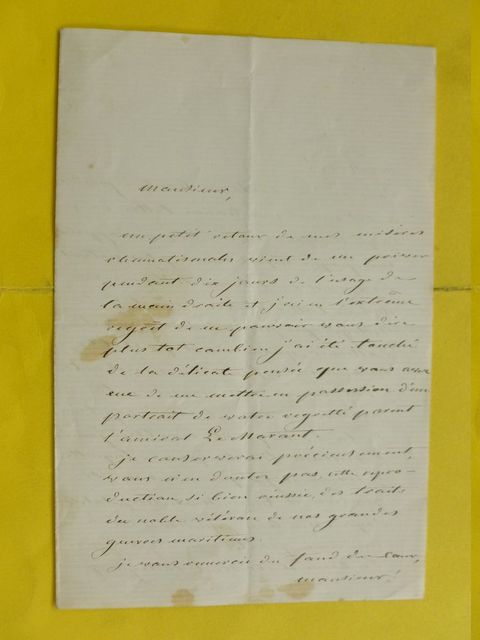 Monsieur,
un petit retour de mes misères
rhumatismales vient de me priver
pendant dix jours de l'usage de
la main droite et j'ai eu l'extrême
regret de ne pouvoir vous dire
plus tot combien j'ai été touché
de la délicate pensée que vous avez
eue de me mettre en possession d'un
portrait de votre regretté parent
l'amiral Le Marant.
je conserverai précieusement,
vous n'en doutez pas, cette repro-
duction, si bien réussie, des traits
du noble vétéran de nos grandes
guerres maritimes.
je vous remercie du fond du cœur,
monsieur!